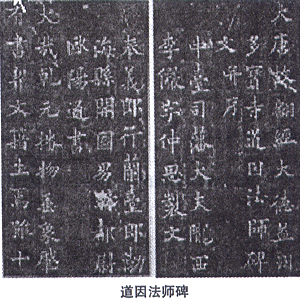 大唐故翻經大德益州
多寶寺道因法師碑
文并序
中臺司藩大夫隴西
李儼字仲思製文
奉義郎行蘭臺郎渤
海縣開國男騎都尉
歐陽通書
大哉乾元播物垂象
有書契文籍生焉雖十
道因法师碑